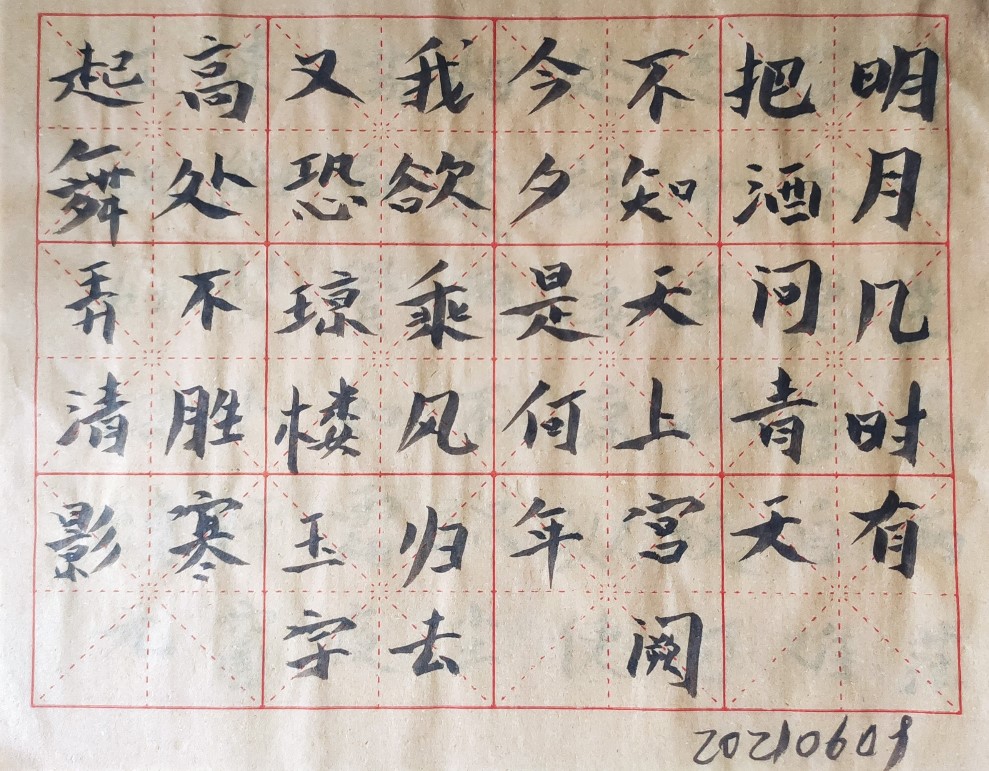 明月几时有
把酒问青天
不知天上宫阙
今夕是何年
我欲乘风归去
又恐琼楼玉宇
高处不胜寒
起舞弄清影
20210609